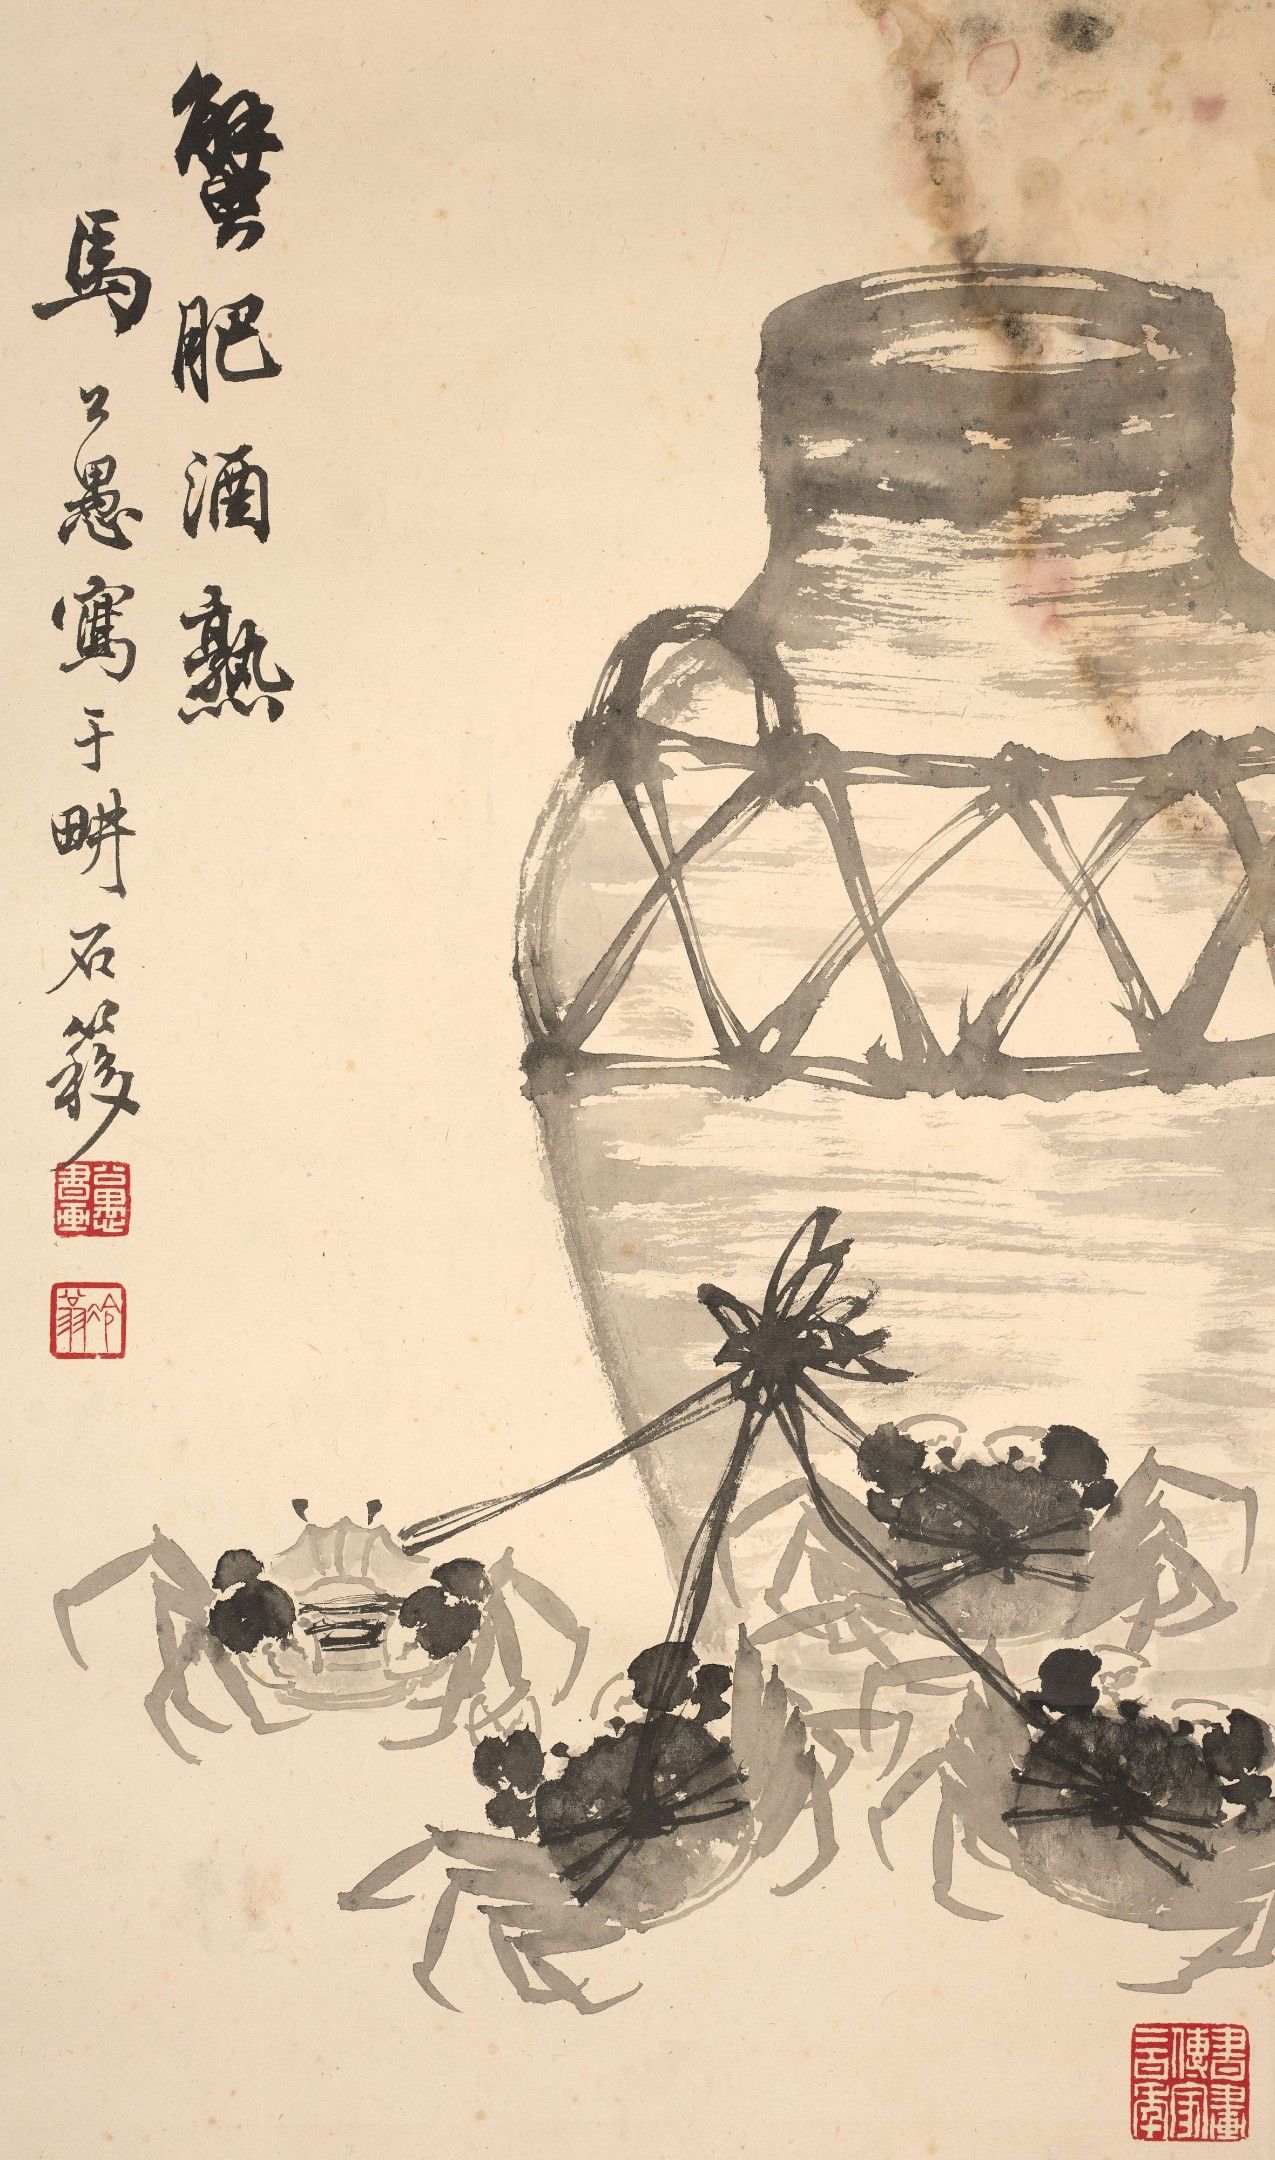 蟹肥酒熟
馬公愚寫于畊石簃
公愚書畫
冷翁
書畫傳家三百年